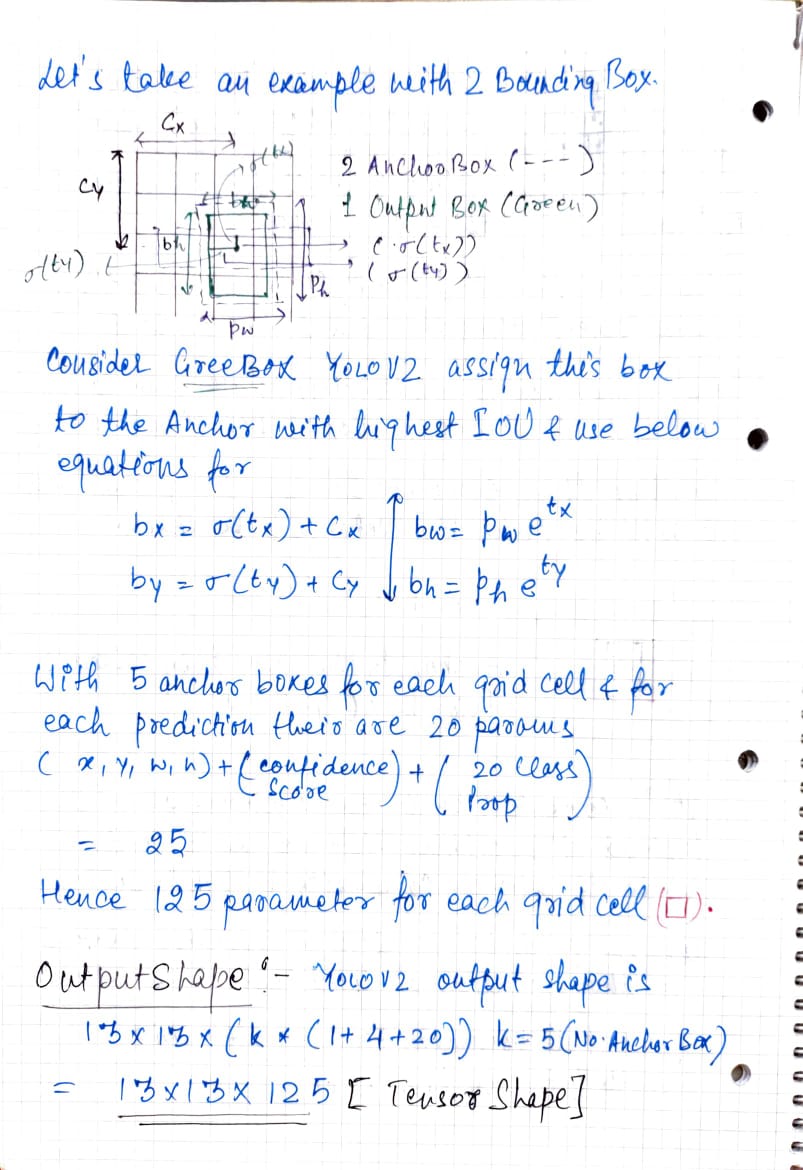 Let's take an example with 2 Bounding Box.
Cx
σ(tx)
2 Anchor Box (---)
Cy
bw
1 Output Box (Green)
bh
(·σ(tx))
σ(ty)
(σ(ty))
Ph
Pw
Consider GreeBox YOLO V2 assign this box
to the Anchor with highest IOU & use below
equations for
bx = σ(tx) + Cx bw = Pw e^tx
by = σ(ty) + Cy bh = Ph e^ty
With 5 anchor boxes for each grid cell & for
each prediction their are 20 params
(x, y, w, h) + (confidence Score) + (20 Class Prop)
= 25
Hence 125 parameter for each grid cell (□).
Output Shape :- YOLO V2 output shape is
13 x 13 x (k * (1+4+20)) k = 5 (No. Anchor Box)
= 13 x 13 x 125 [Tensor Shape]